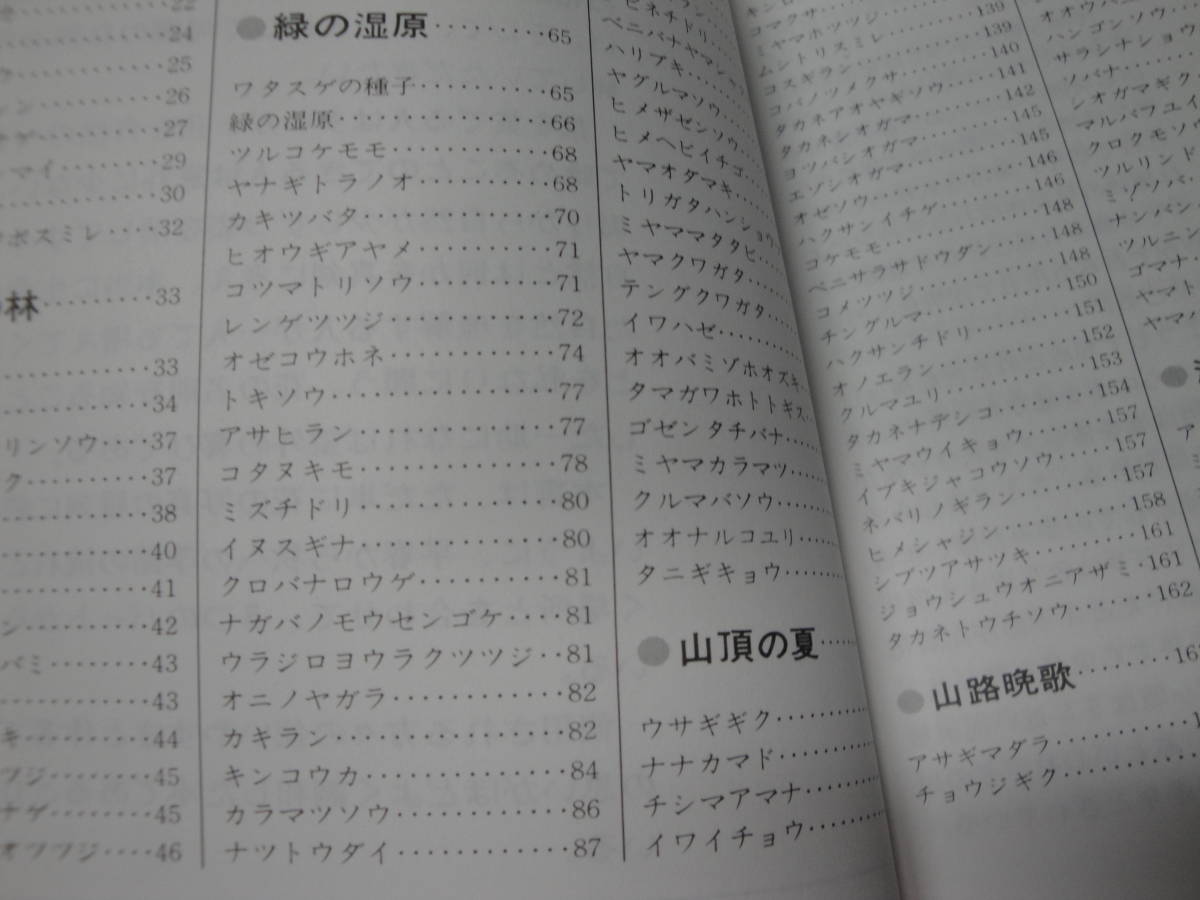 22
24
25
レン‥‥26
ゲ‥‥27
マイ‥‥29
30
ボスミレ‥‥32
林‥‥33
33
34
リンソウ‥‥37
ク‥‥37
38
40
41
ン‥‥42
バミ‥‥43
43
キ‥‥44
ツジ‥‥45
ナゲ‥‥45
オツツジ‥‥46
●緑の湿原‥‥65
ワタスゲの種子‥‥65
緑の湿原‥‥66
ツルコケモモ‥‥68
ヤナギトラノオ‥‥68
カキツバタ‥‥70
ヒオウギアヤメ‥‥71
コツマトリソウ‥‥71
レンゲツツジ‥‥72
オゼコウホネ‥‥74
トキソウ‥‥77
アサヒラン‥‥77
コタヌキモ‥‥78
ミズチドリ‥‥80
イヌスギナ‥‥80
クロバナロウゲ‥‥81
ナガバノモウセンゴケ‥‥81
ウラジロヨウラクツツジ‥‥81
オニノヤガラ‥‥82
カキラン‥‥82
キンコウカ‥‥84
カラマツソウ‥‥86
ナツトウダイ‥‥87
ハリブキ
ヤグルマソウ
ヒメザゼンソウ
ヒメヘビイチゴ
ヤマオダマキ
トリガタハンショウ
ミヤママタタビ
ヤマクワガタ
テングクワガタ
イワハゼ
オオバミゾホオズキ
タマガワホトトギス
ゴゼンタチバナ
ミヤマカラマツ
クルマバソウ
オオナルコユリ
タニギキョウ
●山頂の夏
ウサギギク
ナナカマド
チシマアマナ
イワイチョウ
コマクサ‥‥139
ミヤマホツツジ‥‥139
ムシトリスミレ‥‥140
コスギラン‥‥141
コバノツメクサ‥‥142
タカネアオヤギソウ‥‥145
タカネシオガマ‥‥145
ヨツバシオガマ‥‥146
エゾシオガマ‥‥146
オゼソウ‥‥148
ハクサンイチゲ‥‥148
コケモモ‥‥148
ベニサラサドウダン‥‥150
コメツツジ‥‥151
チングルマ‥‥152
ハクサンチドリ‥‥153
オノエラン‥‥154
クルマユリ‥‥157
タカネナデシコ‥‥157
ミヤマウイキョウ‥‥157
イブキジャコウソウ‥‥158
ネバリノギラン‥‥161
ヒメシャジン‥‥161
シブツアサツキ
ジョウシュウオニアザミ
タカネトウチソウ‥‥162
●山路晩歌
アサギマダラ
チョウジギク
ハンゴンソウ
サラシナショウ
ソバナ
シオガマギク
マルバフユイ
クロクモソウ
ツルリンド
ミゾソバ
ナンバン
ツルニン
ゴマナ
ヤマト
ヤマハ